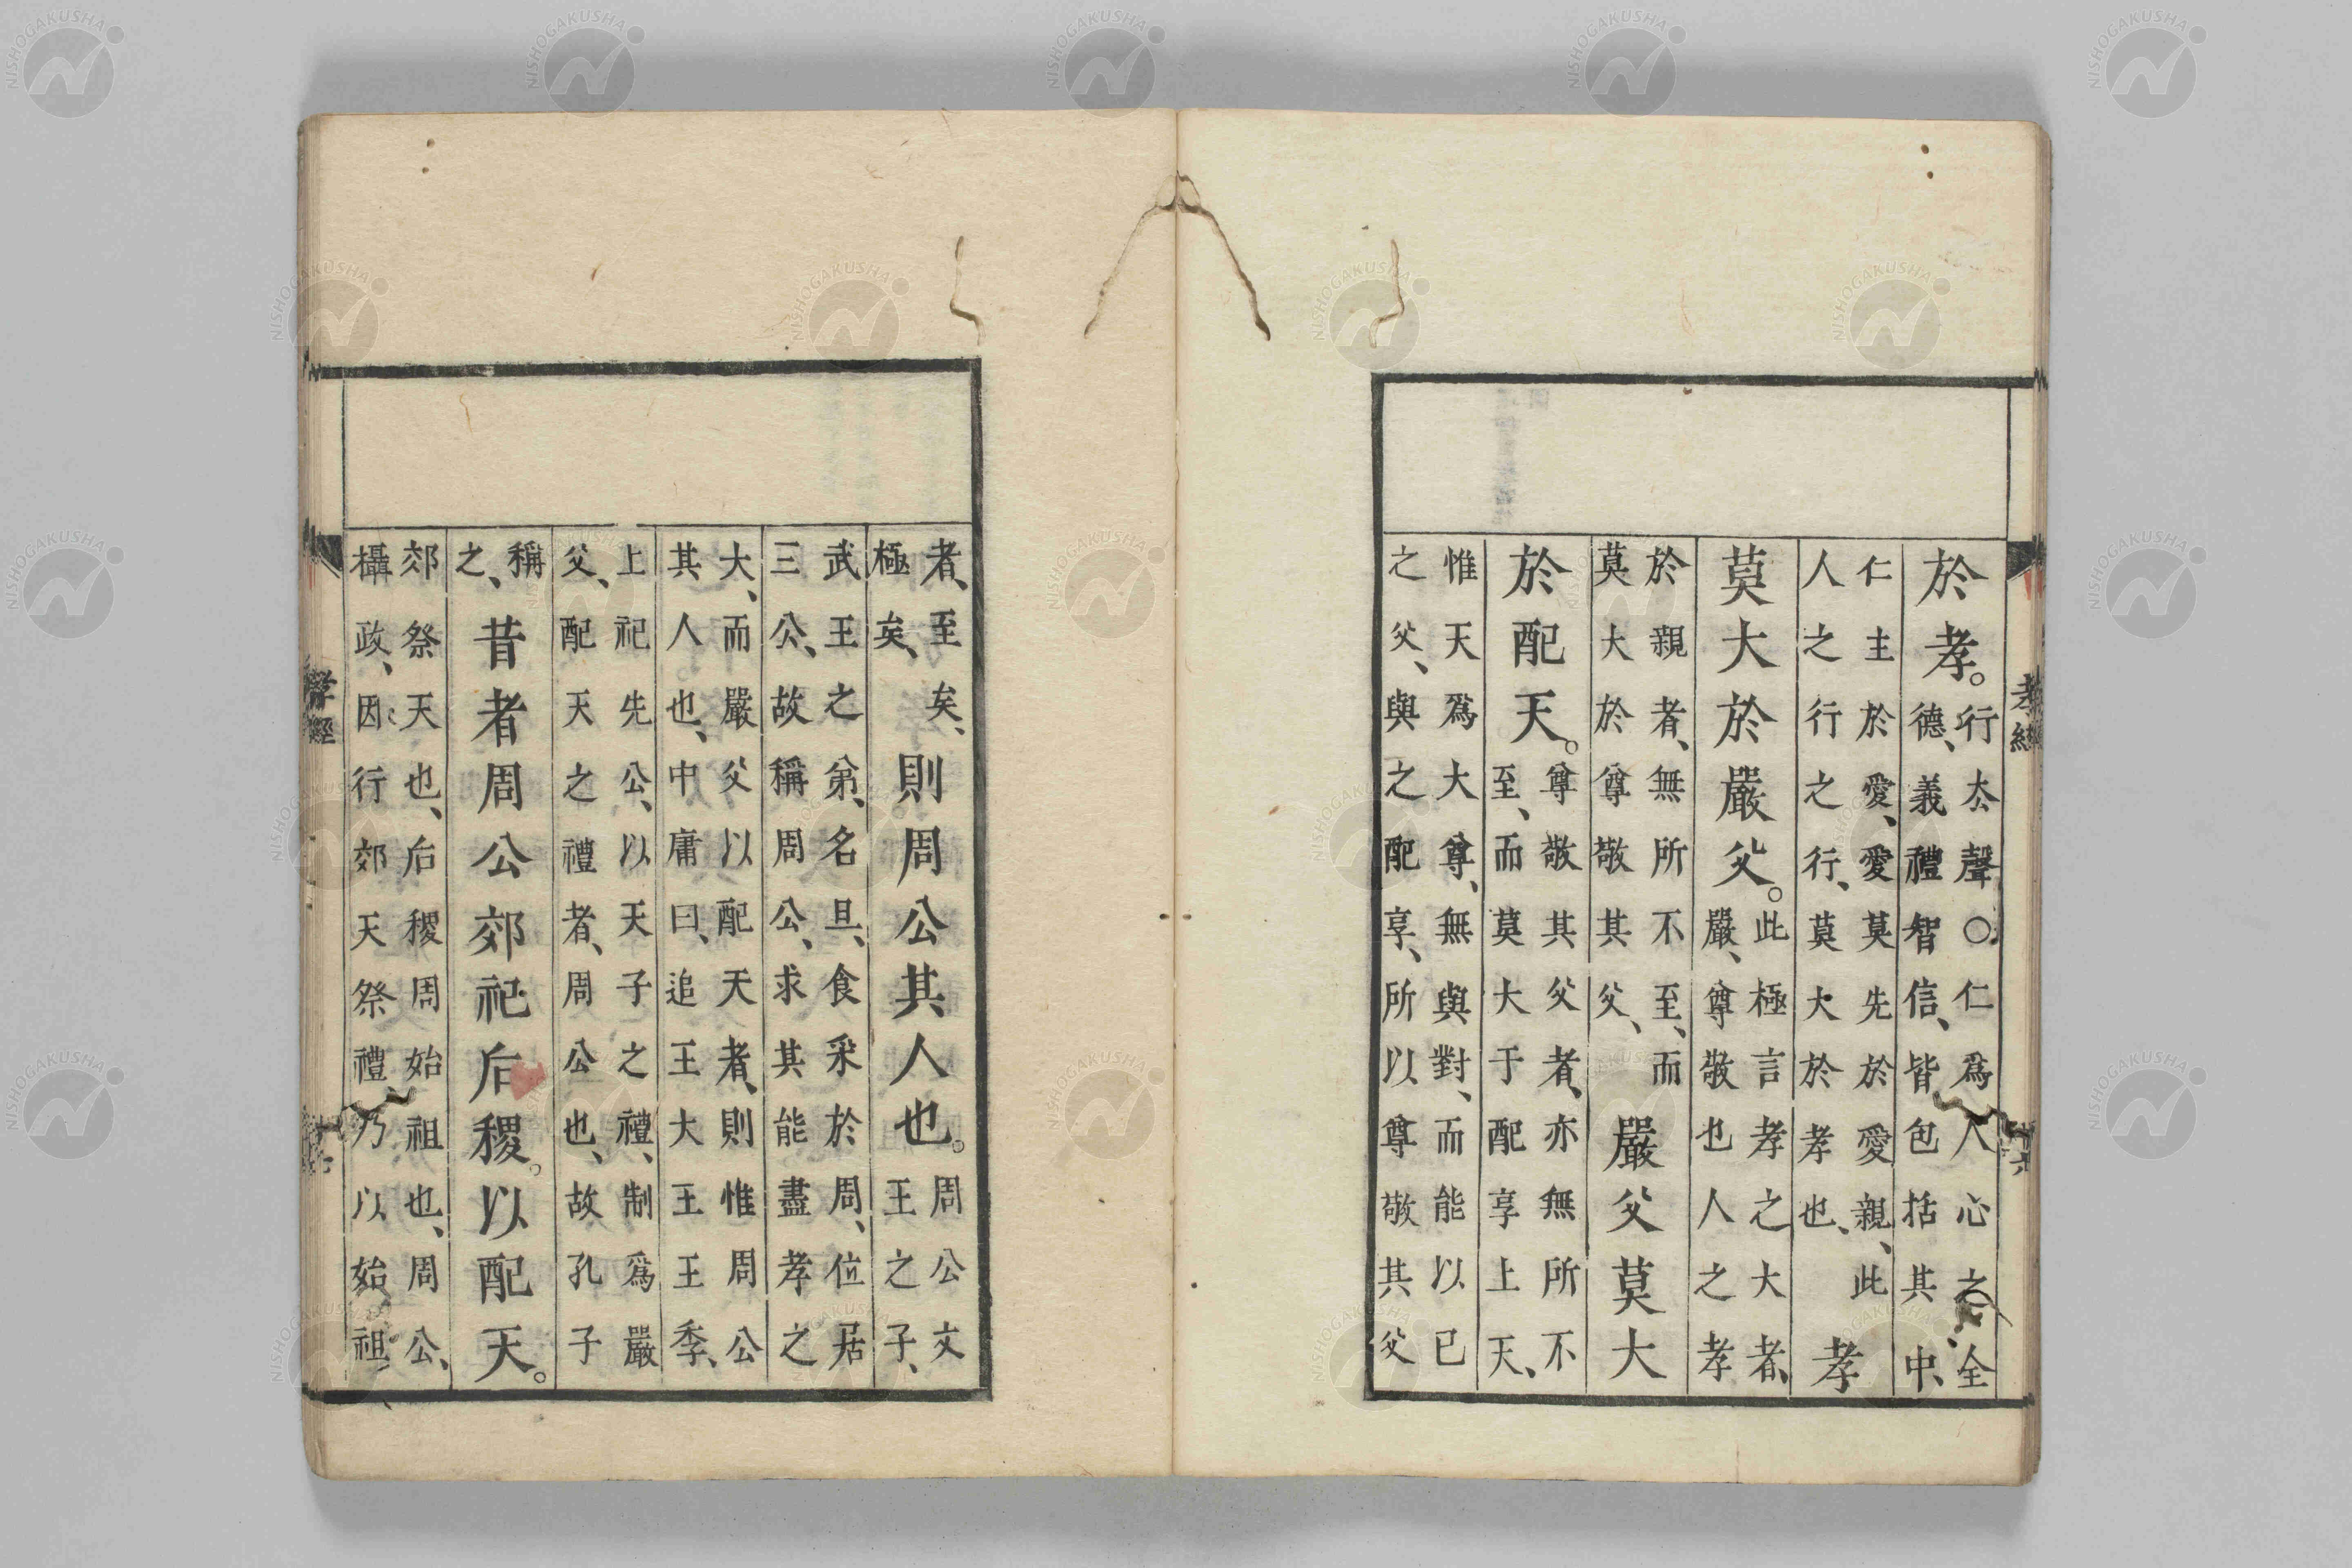 於孝。行去聲○仁爲人心之全
德、義禮智信、皆包括其中、
仁主於愛、愛莫先於愛親、此
人之行之行、莫大於孝也、孝
莫大於嚴父。此極言孝之大者、
嚴、尊敬也人之孝
於親者、無所不至、而
莫大於尊敬其父、嚴父莫大
於配天。尊敬其父者、亦無所不
至、而莫大于配享上天、
惟天爲大尊、無與對、而能以已
之父、與之配享、所以尊敬其父
孝經
六
者、至矣、
極矣、則周公其人也。周公文
王之子、
武王之弟、名旦、食采於周、位居
三公、故稱周公、求其能盡孝之
大、而嚴父以配天者、則惟周公
其人也、中庸曰、追王大王王季、
上祀先公、以天子之禮、制爲嚴
父、配天之禮者、周公也、故孔子
稱
之、昔者周公郊祀后稷。以配天。
郊祭天也、后稷周始祖也、周公、
攝政、因行郊天祭禮乃以始祖、
孝經
NISHOGAKUSHA